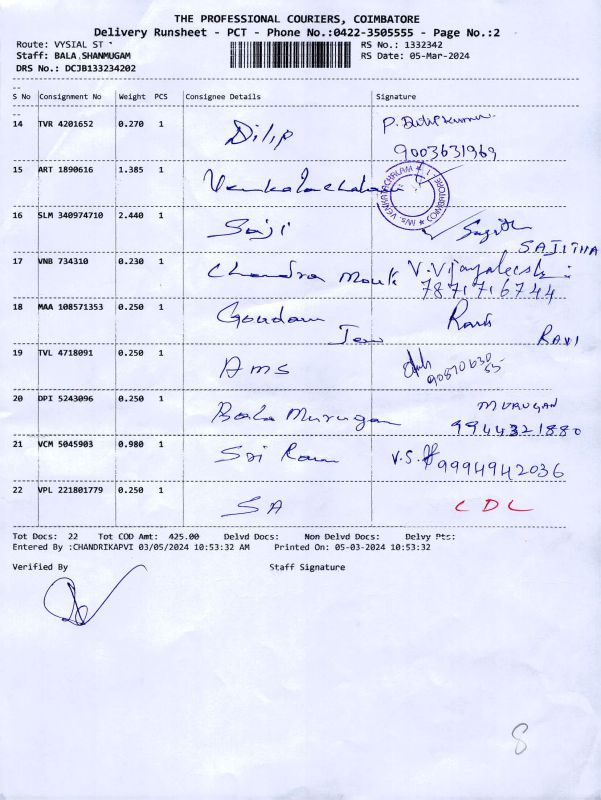 THE PROFESSIONAL COURIERS, COIMBATORE
Delivery Runsheet - PCT - Phone No.:0422-3505555 - Page No.:2
Route: VYSIAL ST RS No.: 1332342
Staff: BALA.SHANMUGAM RS Date: 05-Mar-2024
DRS No.: DCJB133234202
S No Consignment No Weight PCS Consignee Details Signature
14 TVR 4201652 0.270 1 Dilip P. Dilipkumar
9003631969
15 ART 1890616 1.385 1 Venkatachalam M/s. VENKATACHALAM COIMBATORE - 1
16 SLM 340974710 2.440 1 Saji
SAJITHA
17 VNB 734310 0.230 1 Chandra Mouli V. Vijayaleesh
7871716744
18 MAA 108571353 0.250 1 Goudam Ravi
RAVI
19 TVL 4718091 0.250 1 AMS 90870630
55
20 DPI 5243096 0.250 1 Bala Murugan MURUGAN
9944321880
21 VCM 5045903 0.980 1 Sri Ram V.S. 9994942036
22 VPL 221801779 0.250 1 SA CDL
Tot Docs: 22 Tot COD Amt: 425.00 Delvd Docs: Non Delvd Docs: Delvy Pts:
Entered By :CHANDRIKAPVI 03/05/2024 10:53:32 AM Printed On: 05-03-2024 10:53:32
Verified By Staff Signature
8